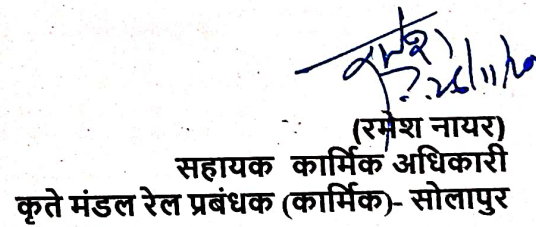 रमेश
26/11/20
(रमेश नायर)
सहायक कार्मिक अधिकारी
कृते मंडल रेल प्रबंधक (कार्मिक)- सोलापुर